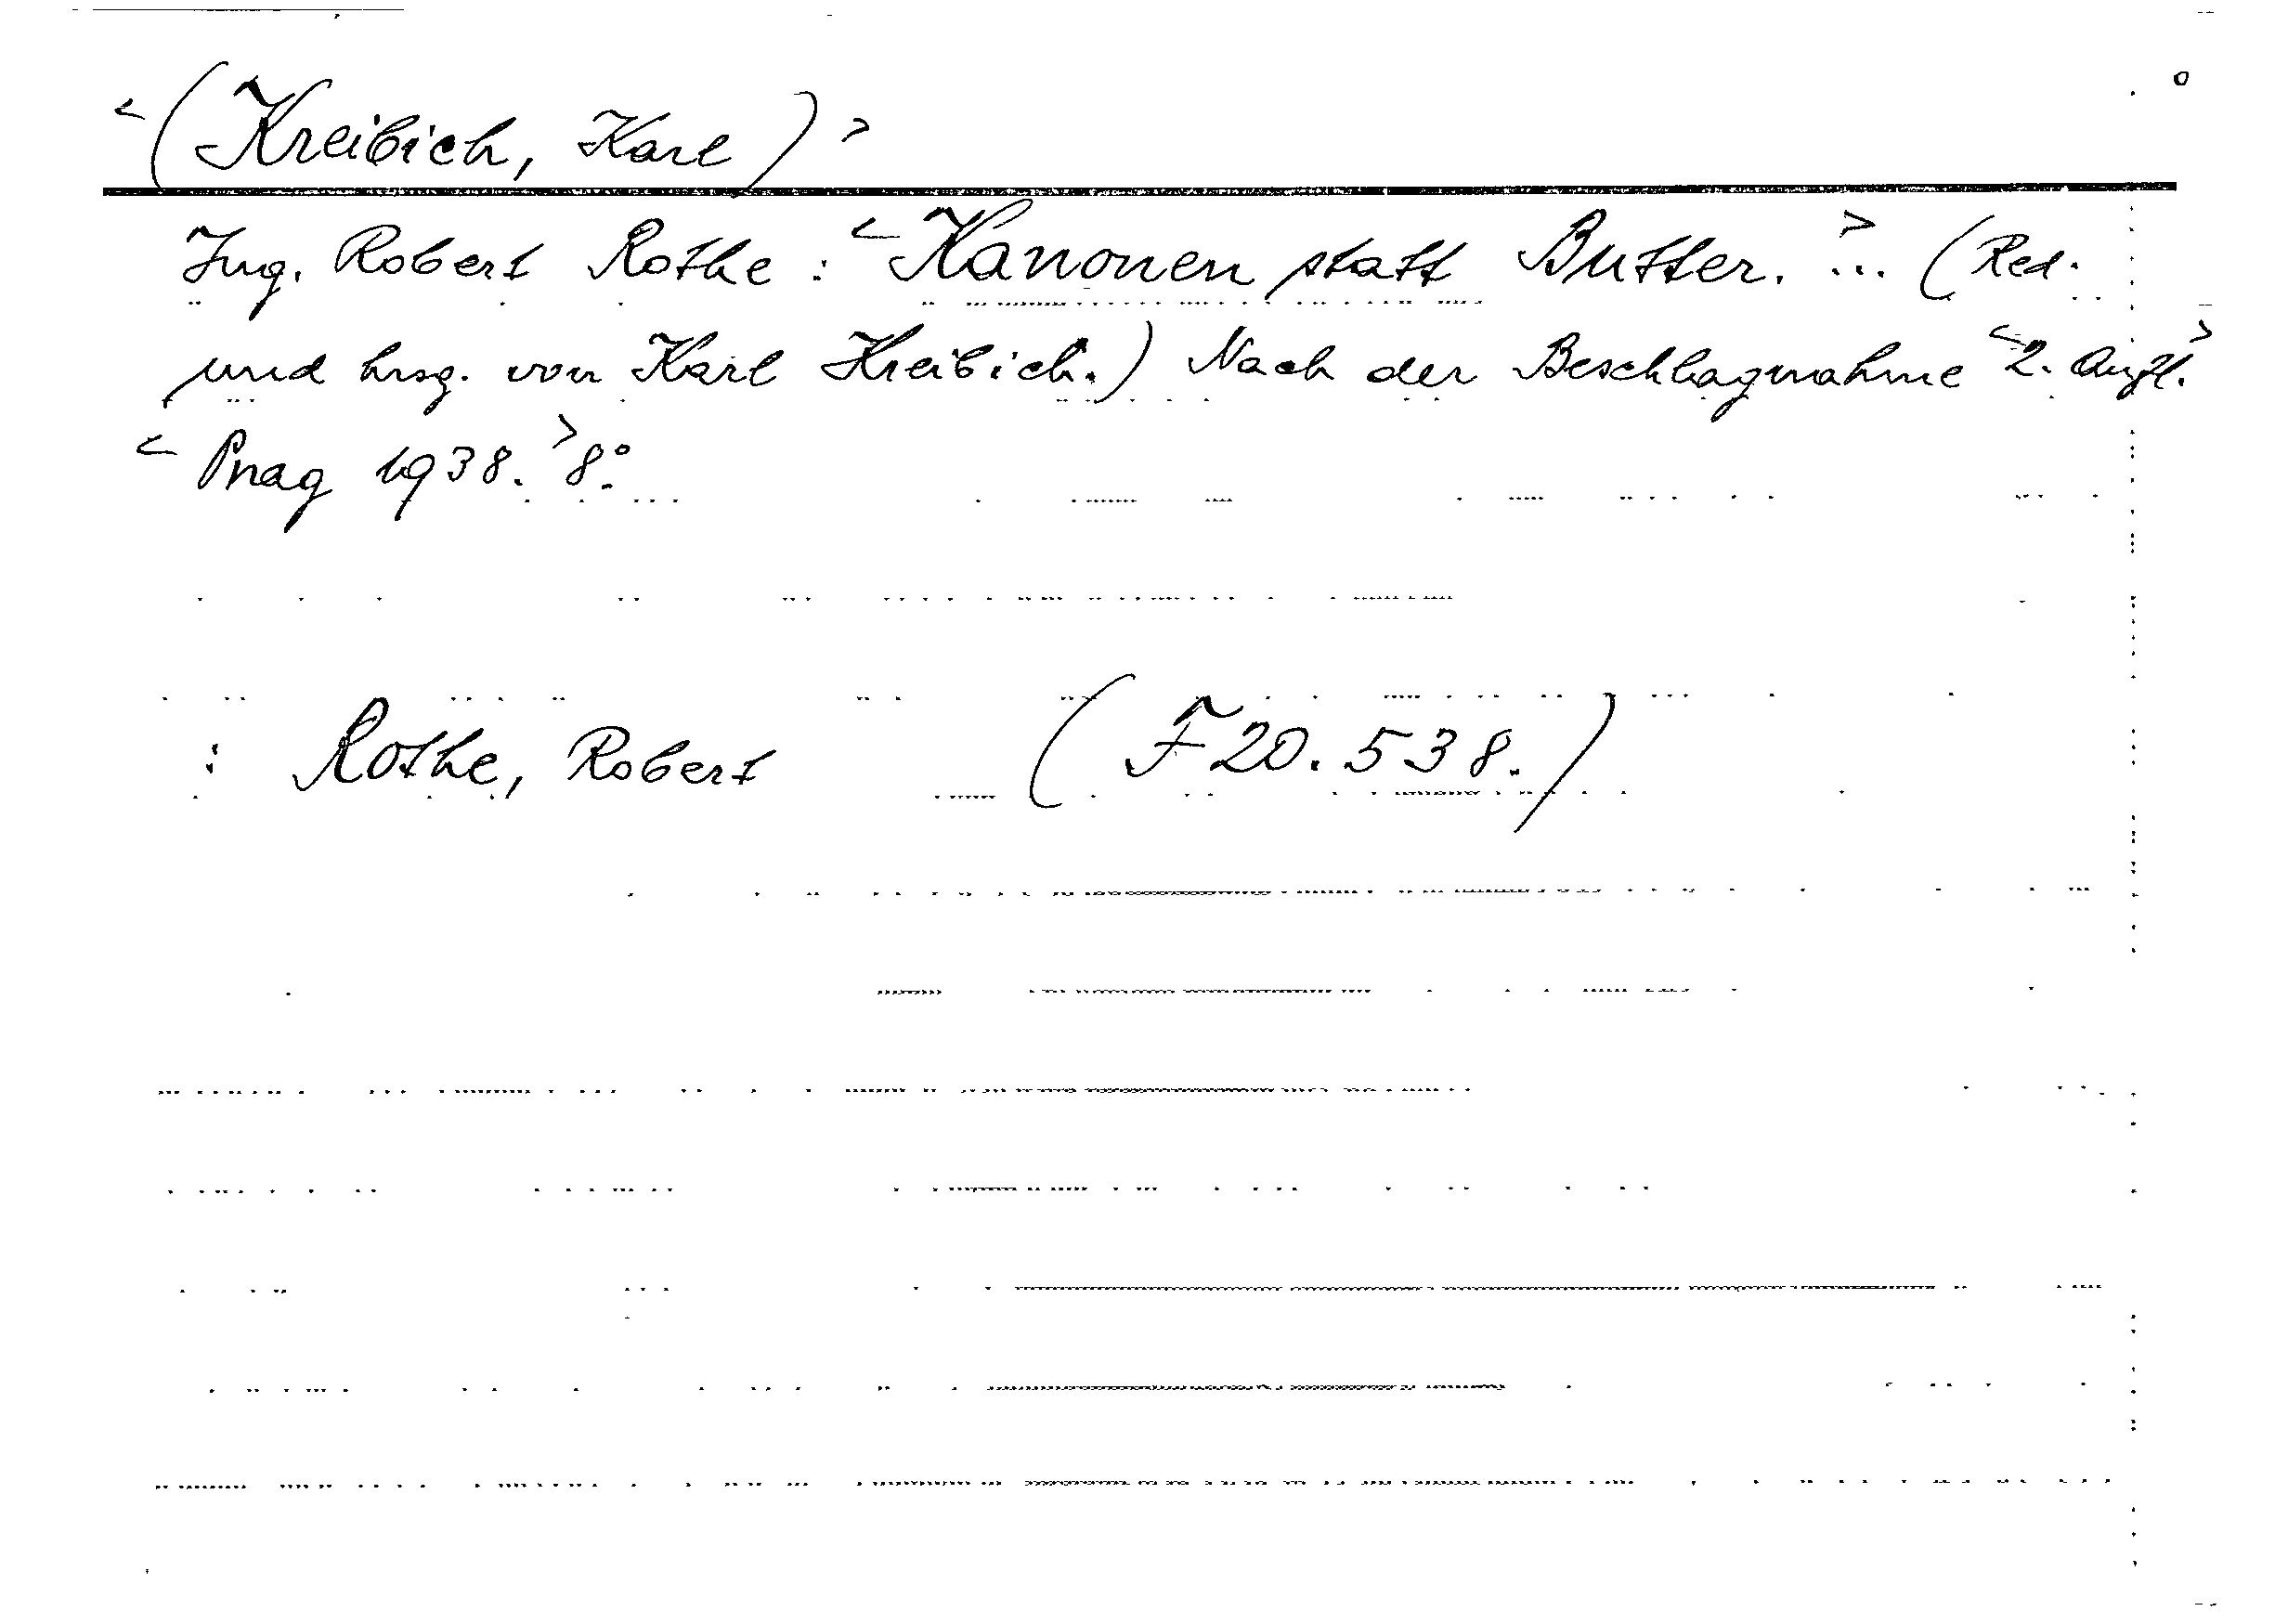 <(Kreibich, Karl)>
Ing. Robert Rothe: <Kanonen statt Butter.> ... (Red.
und hrsg. von Karl Kreibich.) Nach der Beschlagnahme <2. Aufl.>
<Prag 1938.> 8°.
: Rothe, Robert (F 20.538.)